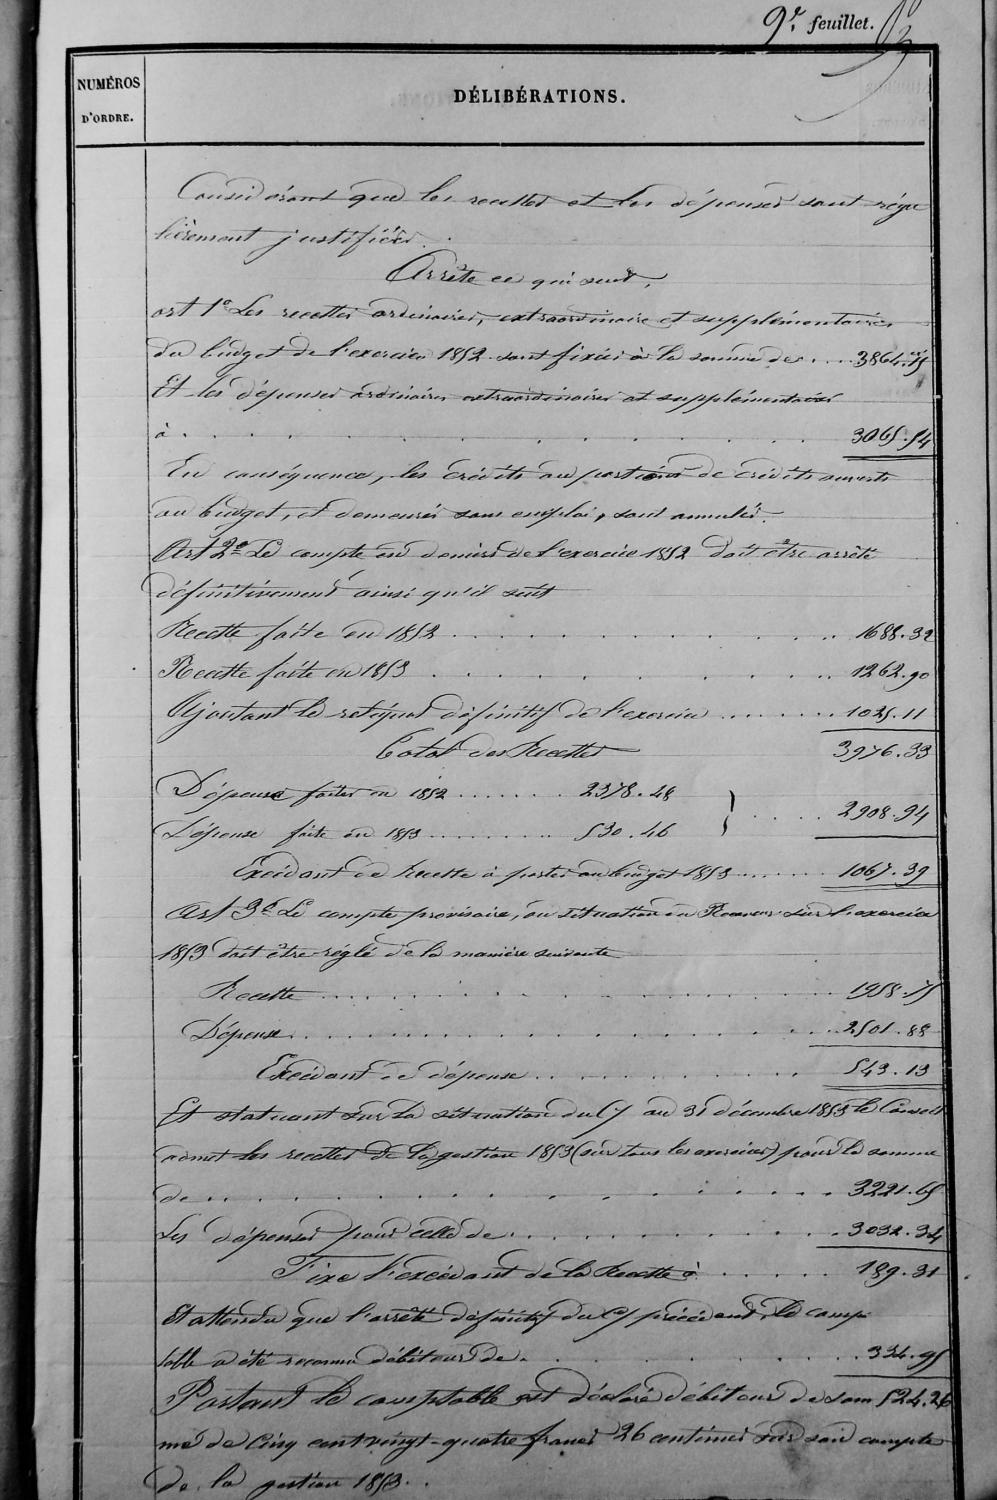 9e. feuillet.
NUMÉROS
D'ORDRE.
DÉLIBÉRATIONS.
Considérant que les recettes et les dépenses sont régu
lièrement justifiées.
Arrête ce qui suit,
art 1er Les recettes ordinaires, extraordinaire et supplémentaires
du budget de l'exercice 1852 sont fixées à la somme de .... 3864.75
Et les dépenses ordinaires extraordinaires et supplémentaires
à . . . . . . . . . . 3065.54
En conséquence, les crédits ou portions de crédits ouverts
au budget, et demeurés sans emploi, sont annulés.
Art 2e Le compte en deniers de l'exercice 1852 doit être arrêté
définitivement ainsi qu'il suit
Recette faite en 1852 . . . . . . . 1688.32
Recette faite en 1853 . . . . . . . 1262.90
Ajoutant le reliquat définitif de l'exercice ....... 1025.11
Total des Recettes 3976.33
Dépense faites en 1852 ....... 2378.48
} .... 2908.94
Dépense faite en 1853 ......... 530.46
Excédant de Recette à porter au budget 1853 ...... 1067.39
Art 3e Le compte provisoire, ou situation du Receveur sur l'exercice
1853 doit être réglé de la manière suivante
Recette ................ 1958.75
Dépense ................ 2501.88
Excédant de dépense ........ 543.13
Et statuant sur la situation du Cble au 31 décembre 1853 le Conseil
admet les recettes de la gestion 1853 (sur tous les exercices) pour la somme
de . . . . . . . . . . 3221.65
Les dépenses pour celle de . . . . . . . 3032.34
Fixe l'excédant de la Recette à . . . . . 189.31
Et attendu que l'arrêté définitif du Cte précédent, le comp
table a été reconnu débiteur de . . . . . . . . 334.95
Partant le comptable est déclaré débiteur de som 524.26
me de Cinq cent vingt-quatre francs 26 centimes sur son compte
de la gestion 1853.